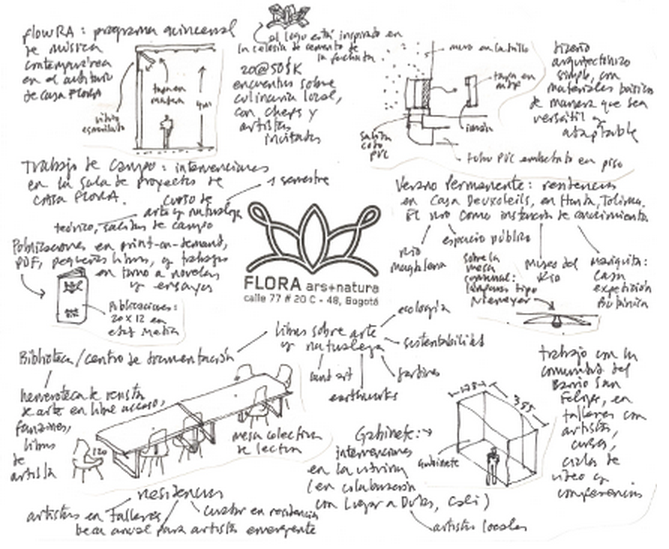 flowRA: programa quincenal
de música
contemporánea
en el auditorio
de casa FLORA
vidrio
esmerilado
tapa en
madera
4m
el logo está inspirado en
la celosía de cemento de
la fachada
20@50$K
encuentros sobre
culinaria local,
con chefs y
artistas
invitados
muro en ladrillo
tapa en
salida
codo
PVC
tubo PVC empotrado en piso
diseño
arquitectónico
simple, con
materiales básicos
de manera que sea
versátil y
adaptable
Trabajo de campo: intervenciones
en la sala de proyectos de
casa FLORA.
curso de
arte y naturaleza
1 semestre
teórico, salidas de campo
Publicaciones en print-on-demand,
PDF, pequeños libros, y trabajos
en torno a novelas
y ensayos
Publicaciones:
20 x 12 en
FLORA ars+natura
calle 77 # 20 C - 48, Bogotá
Verano Permanente: residencias
en Casa Deuxsoleils, en Honda, Tolima.
El río como instancia de conocimiento
río
magdalena
espacio público
sobre la
mesa
comunal:
lámparas tipo
Niemeyer
museo del
Río
mariquita:
casa
expedición
Botánica
Biblioteca/centro de documentación
libros sobre arte
y naturaleza
ecología
sustentabilidad
jardines
land art
earthworks
hemeroteca de revista
de arte en libre acceso,
fanzines,
libros
de
artista
mesa colectiva
de lectura
Gabinete:
intervenciones
en la vitrina
(en colaboración
con Lugar a Dudas, Cali)
artistas locales
Gabinete
3.55
trabajo con la
comunidad del
Barrio San
Felipe, en
talleres con
artistas,
cursos,
ciclos de
video y
conferencias
residencias
artistas en Talleres
curador en residencia
beca anual para artista emergente